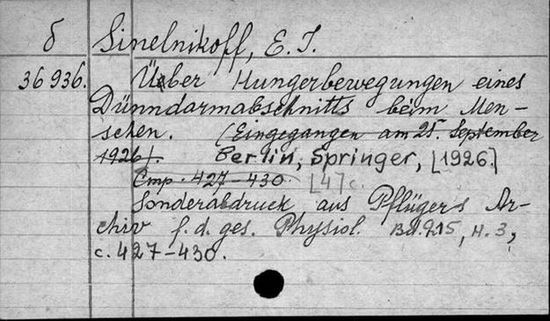 б Sinelnikoff, E. I.
36936. Über Hungerbewegungen eines
Dünndarmabschnitts beim Men-
schen. (Eingegangen am 25. September
1926). Berlin, Springer, [1926.]
Стр. 427-430. [47c.
Sonderabdruck aus Pflügers Ar-
chiv f. d. ges. Physiol. Bd. 215, H. 3,
c. 427-430.